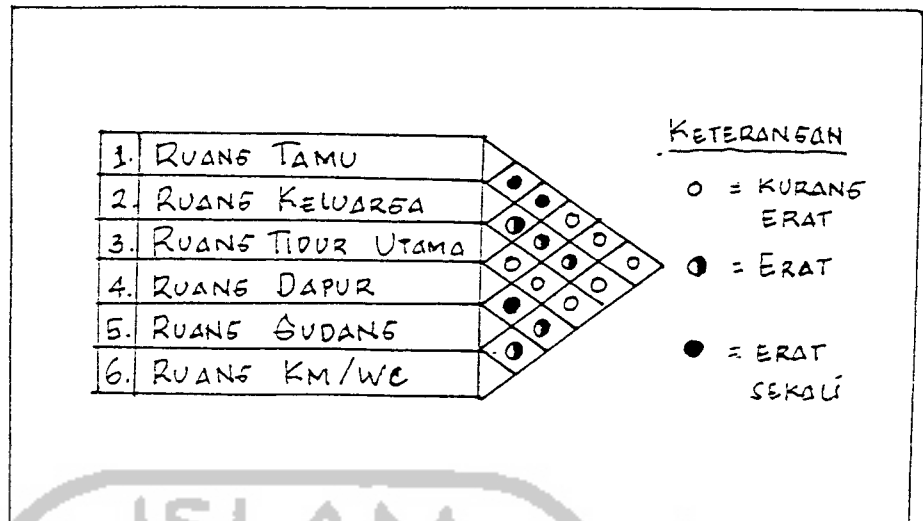 1. RUANG TAMU
2. RUANG KELUARGA
3. RUANG TIDUR UTAMA
4. RUANG DAPUR
5. RUANG GUDANG
6. RUANG KM/WC
KETERANGAN
O = KURANG
ERAT
◑ = ERAT
● = ERAT
SEKALI
ISLAM